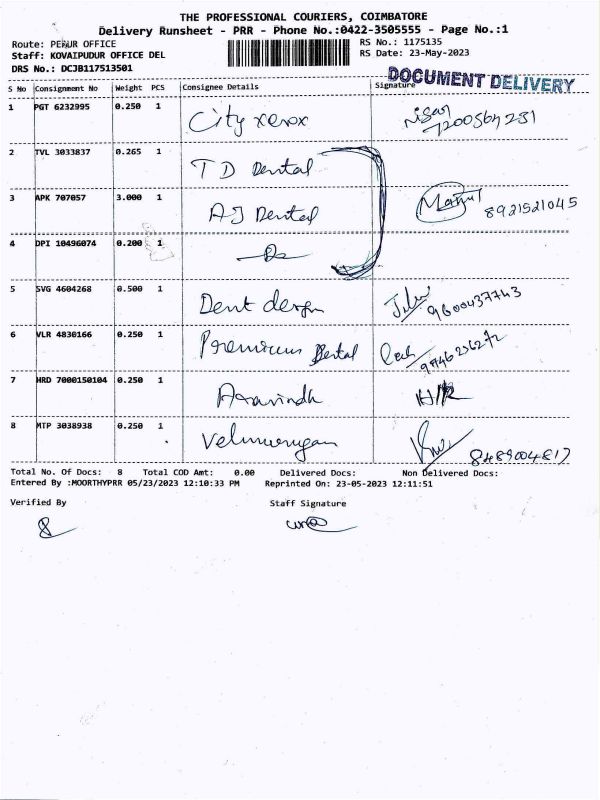 THE PROFESSIONAL COURIERS, COIMBATORE
Delivery Runsheet - PRR - Phone No.:0422-3505555 - Page No.:1
Route: PERUR OFFICE
RS No.: 1175135
Staff: KOVAIPUDUR OFFICE DEL
RS Date: 23-May-2023
DRS No.: DCJB117513501
DOCUMENT DELIVERY
S No Consignment No Weight PCS Consignee Details Signature
1 PGT 6232995 0.250 1 City xerox
2 TVL 3033837 0.265 1 T D Dental
3 APK 707057 3.000 1 AJ Dental 8921521045
4 DPI 10496074 0.200 1
5 SVG 4604268 0.500 1 Dent design 9600437743
6 VLR 4830166 0.250 1 Premium Dental 9746236272
7 HRD 7000150104 0.250 1 Aravindh
8 MTP 3038938 0.250 1 Velmurugan 8489004817
Total No. Of Docs: 8 Total COD Amt: 0.00 Delivered Docs: Non Delivered Docs:
Entered By :MOORTHYPRR 05/23/2023 12:10:33 PM Reprinted On: 23-05-2023 12:11:51
Verified By Staff Signature